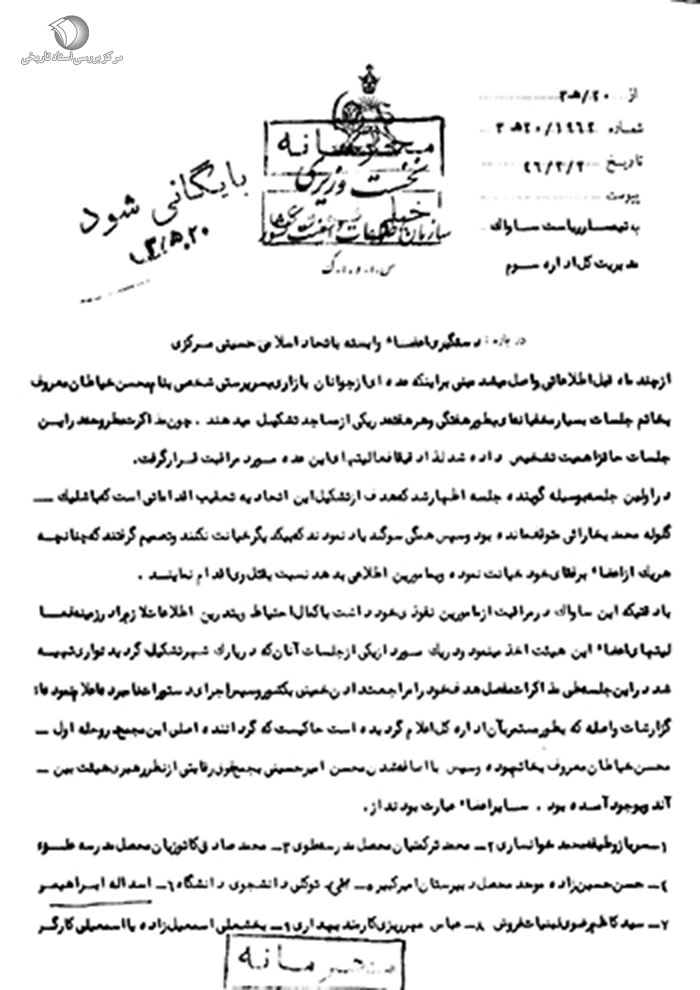 مرکز بررسی اسناد تاریخی
از ۲۰/ه۳
شماره ۲۰/۱۹۶۲ه۳
تاریخ ۴۶/۳/۲
پیوست
به تیمسار ریاست ساواک
مدیریت کل اداره سوم
محرمانه
نخست وزیری
خیلی
سازمان اطلاعات و امنیت کشور
س.ا.و.ا.ک
بایگانی شود
درباره : دستگیری اعضاء وابسته باتحاد اسلامی حسینی مرکزی
از چند ماه قبل اطلاعاتی واصل میشد مبنی بر اینکه عده ای از جوانان بازاری بسرپرستی شخصی بنام محسن خیاطان معروف
بخاتم جلسات بسیار مخفیانه ای بطور هفتگی و هر هفته در یکی از مساجد تشکیل میدهند . چون مذاکرات مطروحه در این
جلسات حائز اهمیت تشخیص داده شد لذا دقیقا فعالیتهای این عده مورد مراقبت قرار گرفت.
در اولین جلسه بوسیله گوینده جلسه اظهار شد که هدف از تشکیل این اتحاد به تعقیب اقداماتی است که با شلیک
گلوله محمد بخارائی متوقف مانده بود و سپس همگی سوگند یاد نمودند که بیکدیگر خیانت نکنند و تصمیم گرفتند که چنانچه
هریک از اعضاء برفقای خود خیانت نموده و بمامورین اطلاعی بدهد نسبت بقتل وی اقدام نمایند .
با دقتیکه این ساواک در مراقبت از مامورین نفوذی خود داشت با کمال احتیاط و بتدریج اطلاعات لازم را در زمینه فعا
لیتهای اعضاء این هیئت اخذ مینمود و در یک مورد از یکی از جلسات آنان که در پارک شهر تشکیل گردید نواری تهیه
شد در این جلسه طی مذاکرات مفصل هدف خود را مراجعت دادن خمینی بکشور و سپس اجرای دستورات نامبرده اعلام نمودند
گزارشات واصله که بطور مستمر بآن اداره کل اعلام گردیده است حاکیست که گرداننده اصلی این مجمع در وحله اول
محسن خیاطان معروف بخاتم بوده و سپس با اضافه شدن محسن امیرحسینی بجمع فوق رقابتی از نظر رهبری هیئت بین
آندو بوجود آمده بود . سایر اعضاء عبارت بودند از.
۱- سرباز وظیفه محمد خوانساری ۲- محمد ترکشیان محصل مدرسه علوی ۳- محمد صادق کاتوزیان محصل مدرسه علوی
۴- حسن حسین زاده موحد محصل دبیرستان امیرکبیر ۵- علی توکلی دانشجوی دانشگاه ۶- اسداله ابراهیم
۷- سید کاظم رضوی لبنیات فروش ۸- عباس مهرریزی کارمند بهداری ۹- بخشعلی اسمعیل زاده یا اسمعیلی کارگر
محرمانه